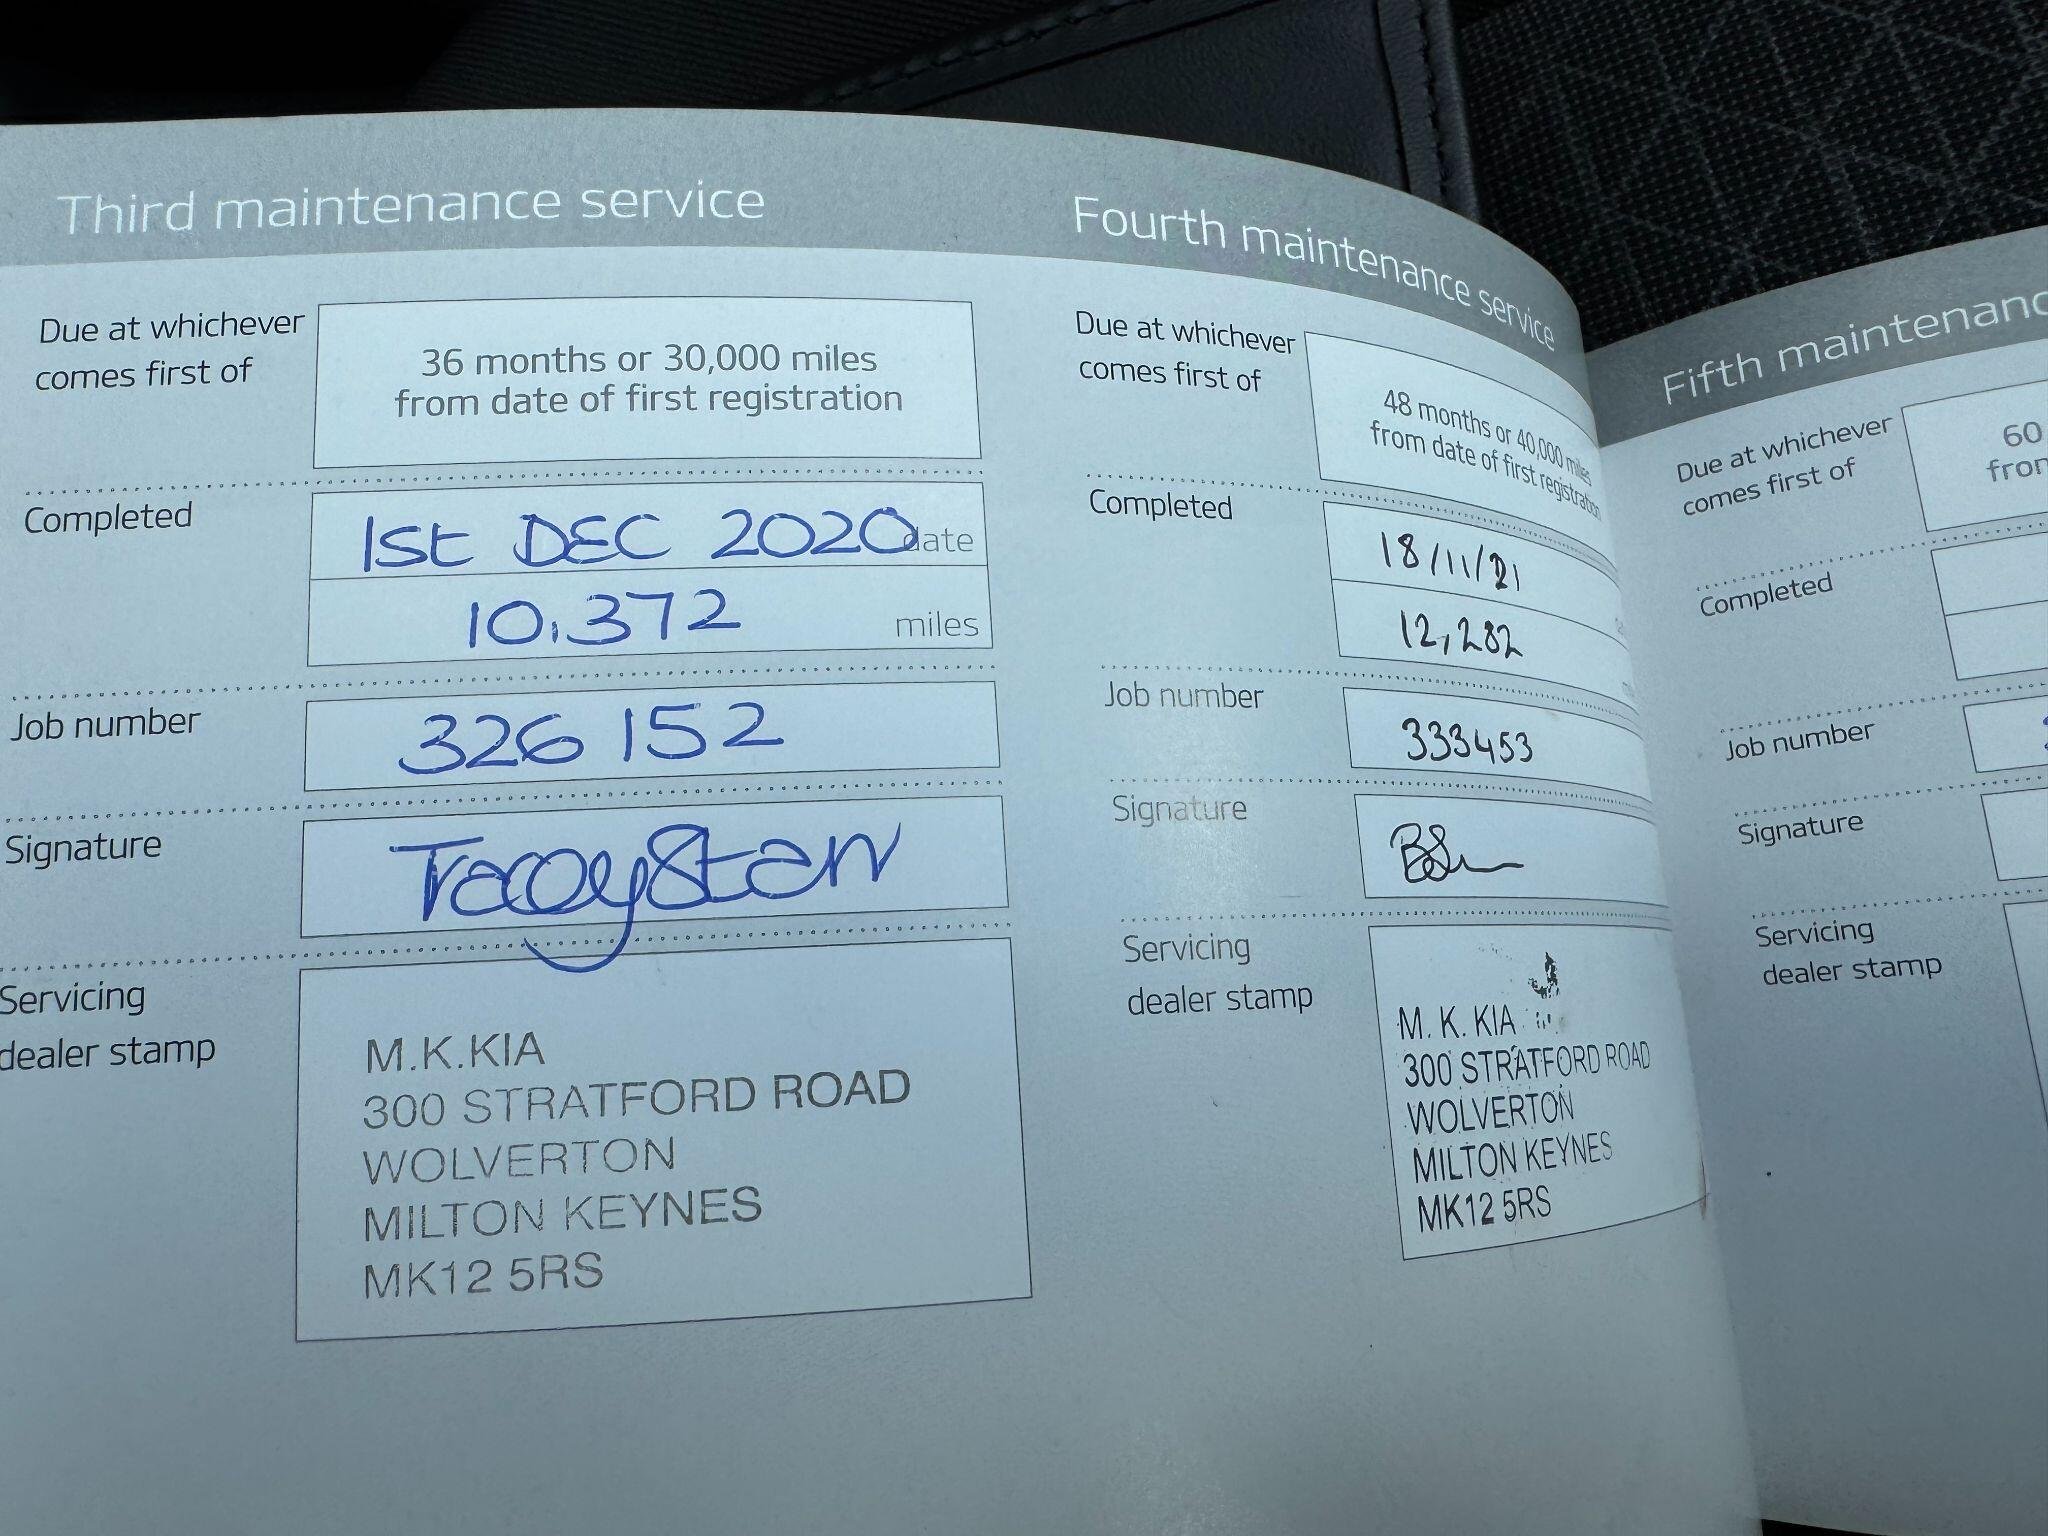 Third maintenance service
Due at whichever
comes first of
36 months or 30,000 miles
from date of first registration
Completed
1st DEC 2020 date
10,372 miles
Job number
326 152
Signature
Servicing
dealer stamp
M.K.KIA
300 STRATFORD ROAD
WOLVERTON
MILTON KEYNES
MK12 5RS
Fourth maintenance service
Due at whichever
comes first of
48 months or 40,000 miles
from date of first registration
Completed
18/11/21
12,282
Job number
333453
Signature
Servicing
dealer stamp
M. K. KIA
300 STRATFORD ROAD
WOLVERTON
MILTON KEYNES
MK12 5RS
Fifth maintenanc
Due at whichever
comes first of
60
from
Completed
Job number
Signature
Servicing
dealer stamp